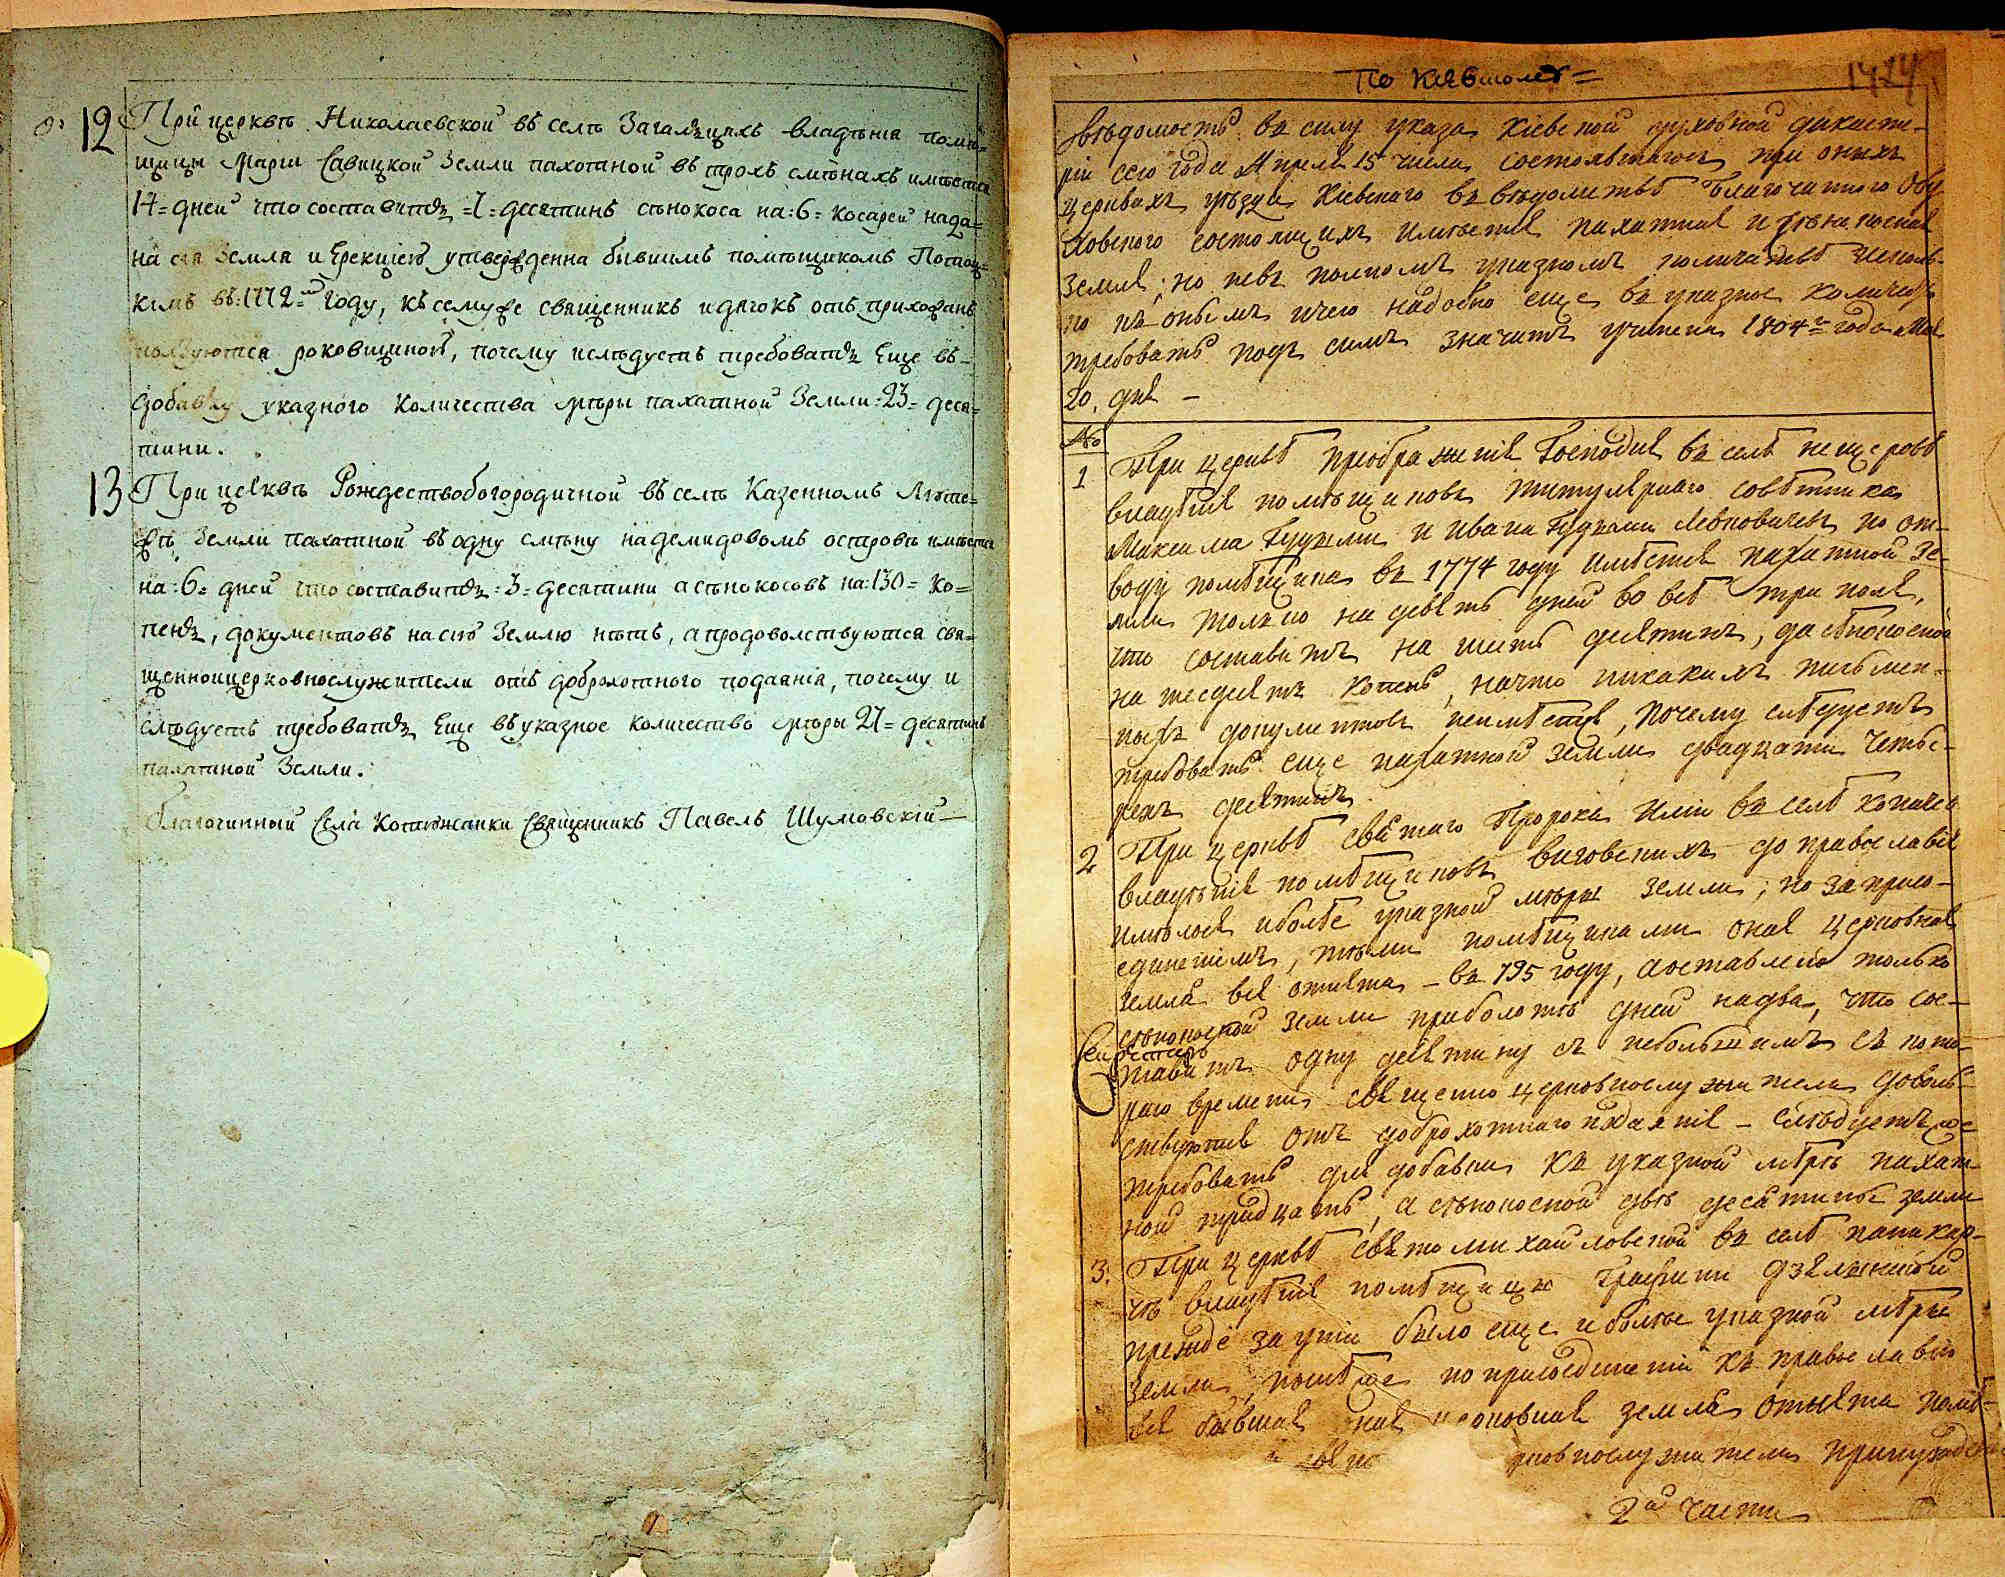 12 При церквѣ Николаевской въ селѣ Загальцахъ владѣнія помѣ=
щицы Маріи Савицкой земли пахотной въ трохъ смѣнахъ имѣется
14= дней что составитъ =7= десятинъ сѣнокоса на :6= косарей нада=
на сія земля и Ерекціею утвержденна бывшимъ помѣщикомъ Потоц=
кимъ въ :1772=мъ году, къ сему же священникъ и дячокъ отъ прихожанъ
ползуются роковщиной, почему и слѣдуетъ требовать еще въ
добавку указного количества мѣры пахатной земли :23= деся=
тини.
13 При церквѣ Рождествобогородичной въ селѣ Казенномъ Люте=
жѣ земли пахатной въ одну смѣну на демидовомъ островѣ имѣется
на :6= дней что составитъ :3= десятини а сѣнокосовъ на :130= ко=
пенъ, документовъ на сію землю нѣтъ, а продоволствуются свя=
щенноицерковнослужители отъ доброхотного подаянія, почему и
слѣдуетъ требовать еще въ указное количество мѣры 27= десятинъ
пахатной земли.
Благочинный села Котюжанки Священникъ Павелъ Шумовскій
1424
Вѣдомость въ силу указа Кіевской духовной дикасте-
ріи сего года Апреля 15 числа состоявшагося при оныхъ
церквахъ уѣзда Кіевского въ вѣдомствѣ благочинного Обу
ховского состоящихъ имѣется пахатная и сѣнокосная
земля; но не въ полномъ указномъ количествѣ
по оныемъ и чего надобно еще въ указное количество
требовать подъ симъ значитъ учинена 1804го года Мая
20. дня —
№
1 При церквѣ преображенія Господня въ селѣ пещеровѣ
владѣнія помѣщиковъ титулярнаго совѣтника
Максима Гудими и Ивана Гудими Левковичевъ по от-
воду помѣщика въ 1774 году имѣется пахатной зе-
мли только на девять дней во всѣ три поля,
что составитъ на шесть десятинъ, да сѣнокосной
на шесдесятъ копенъ, на что никакихъ писмен-
ныхъ документовъ неимѣется, почему слѣдуетъ
требовать еще пахатной земли двадцати четы-
рехъ десятинъ.
2 При церквѣ святаго Пророка Иліи въ селѣ копачев
владѣнія помѣщиковъ виговскихъ до православія
имѣлося и болѣе указной мѣры земли; но за присо-
единеніемъ, тѣми помѣщиками оная церковная
земля вся отнята — въ 795 году, а оставлено только
сѣнокосной земли при болотѣ дней на два, что сос-
тавитъ одну десятину съ небольшимъ съ кото-
раго времени священно церковнослужители доволь-
ствуются отъ доброхотнаго подаянія — Слѣдуетъ же
требовать для добавки къ указной мѣрѣ пахат-
ной тридцать, а сѣнокосной двѣ десятины земли
3. При церквѣ святомихайловской въ селѣ паникар-
чѣ владѣнія помѣщицы Графини дзялинской
прежде за уніи было еще и болѣе указной мѣры
земли, нынѣ же по присоединеніи къ православію
вся бывшая церковная земля отнята помѣ-
2й части